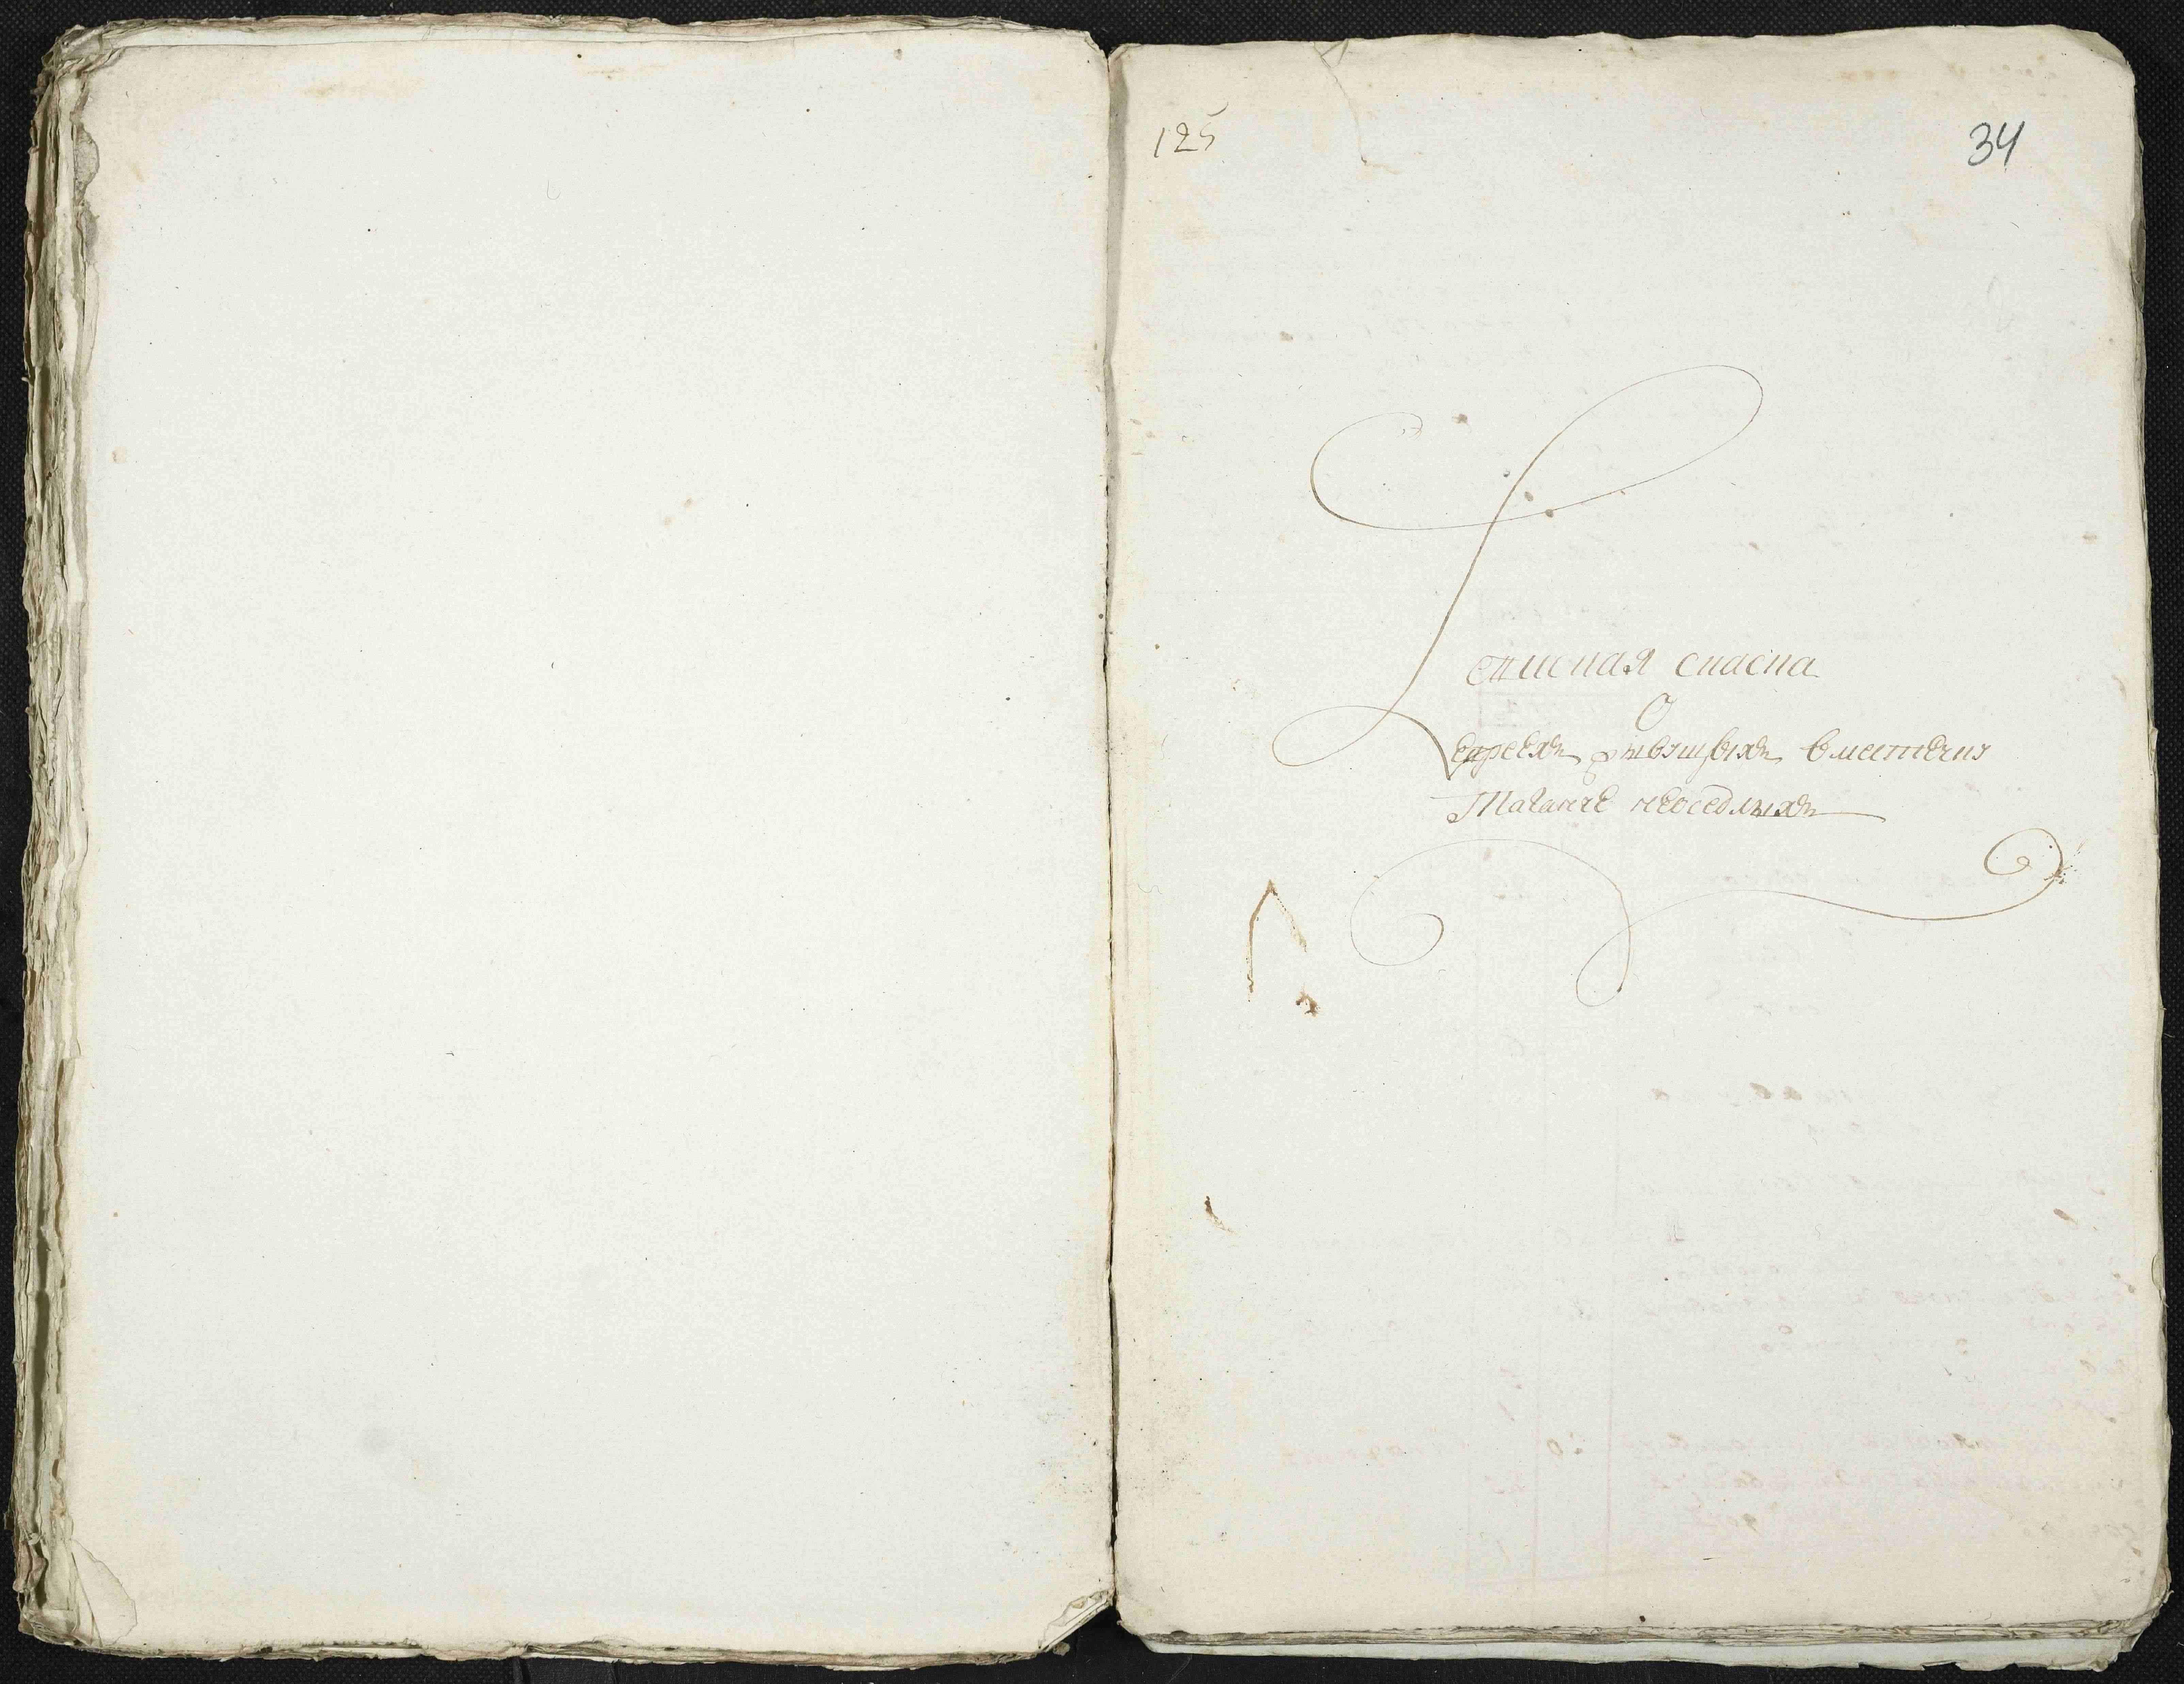 125
34
Ревизская сказка
О
евреях живущих в местечку
Таганче неоседлых